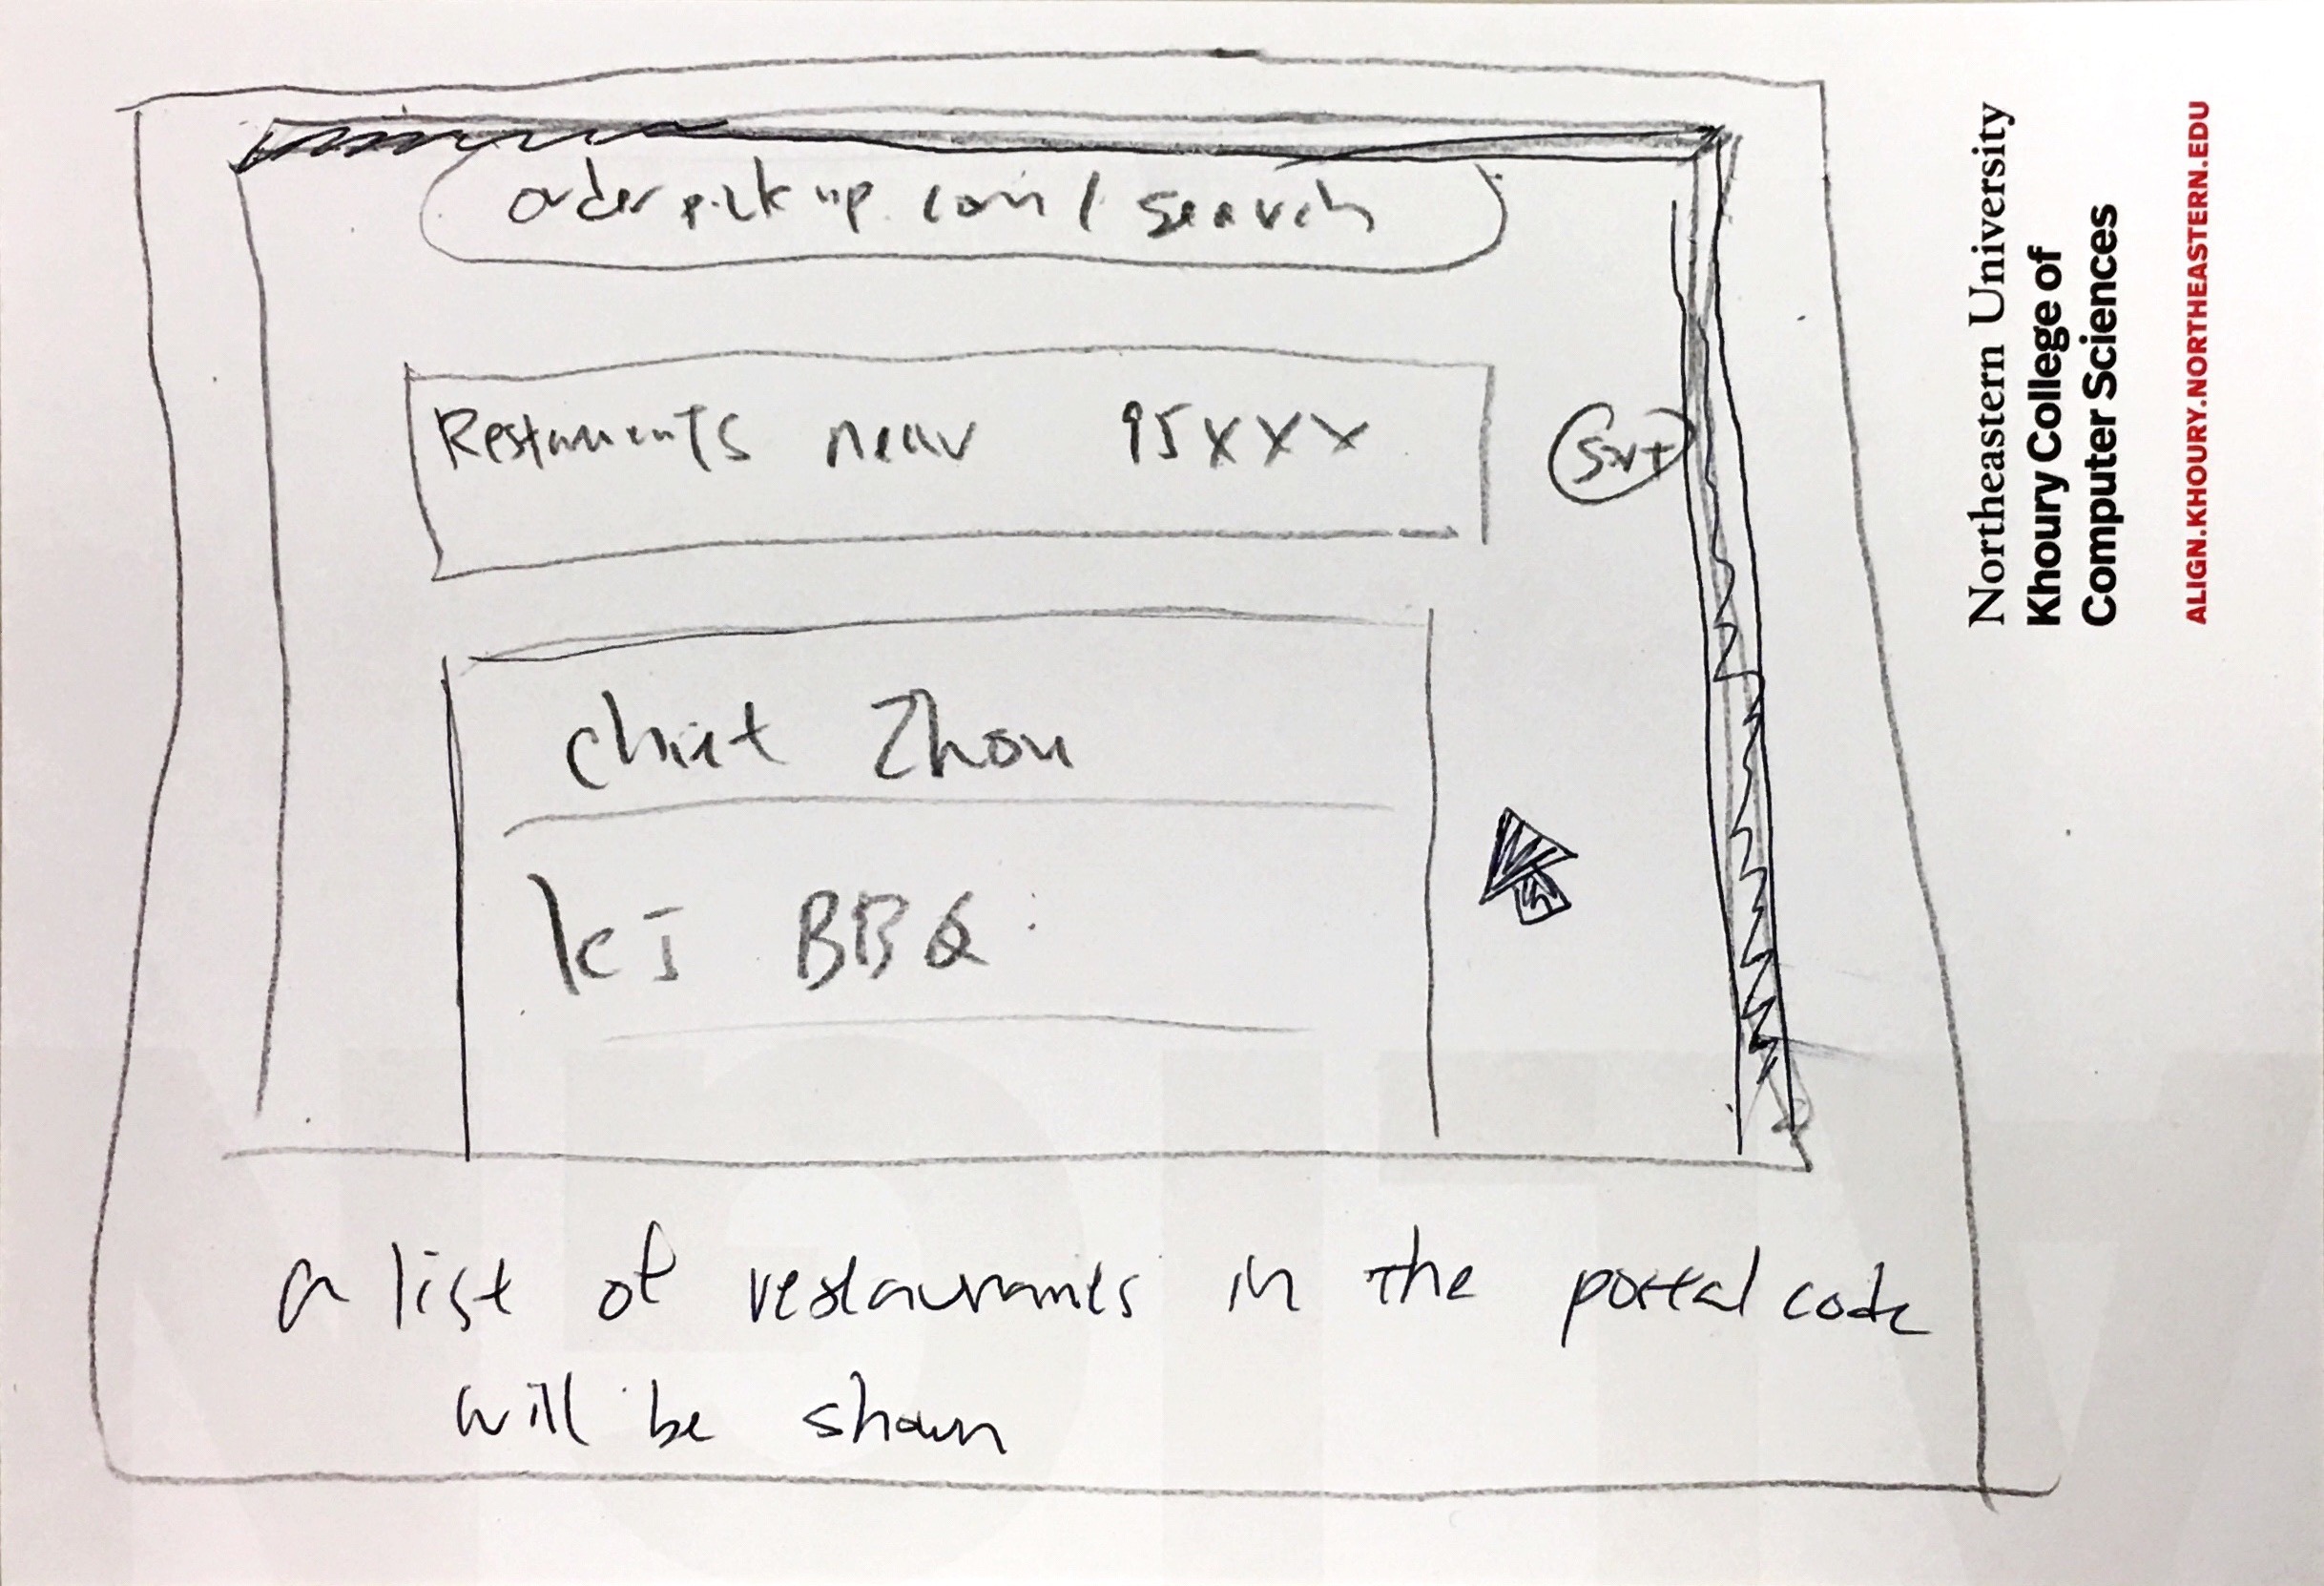 orderpickup.com/search
Restaurants near 95XXX
Sort
Zhou
KJ BBQ
a list of restaurants in the postal code
will be shown
Northeastern University
Khoury College of
Computer Sciences
ALIGN.KHOURY.NORTHEASTERN.EDU
ALIGN